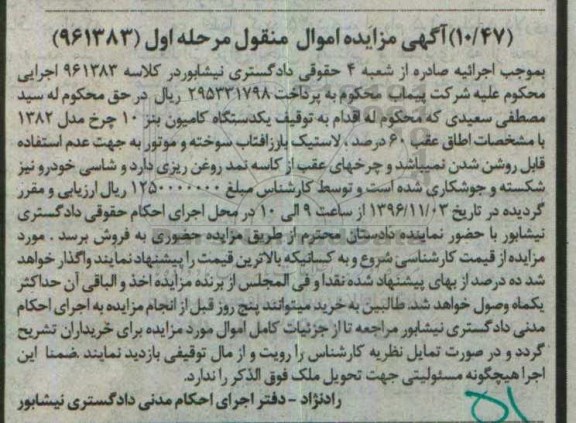 (۱۰/۴۷)آگهی مزایده اموال منقول مرحله اول (۹۶۱۳۸۳)
بموجب اجرائیه صادره از شعبه ۴ حقوقی دادگستری نیشابوردر کلاسه ۹۶۱۳۸۳ اجرایی
محکوم علیه شرکت پیماب محکوم به پرداخت ۲۹۵۳۳۱۷۹۸ ریال در حق محکوم له سید
مصطفی سعیدی که محکوم له اقدام به توقیف یکدستگاه کامیون بنز ۱۰ چرخ مدل ۱۳۸۲
با مشخصات اطاق عقب ۶۰ درصد ، لاستیک بارزافتاب سوخته و موتور به جهت عدم استفاده
قابل روشن شدن نمیباشد و چرخهای عقب از کاسه نمد روغن ریزی دارد و شاسی خودرو نیز
شکسته و جوشکاری شده است و توسط کارشناس مبلغ ۱۲۵۰۰۰۰۰۰۰ ریال ارزیابی و مقرر
گردیده در تاریخ ۱۳۹۶/۱۱/۰۳ از ساعت ۹ الی ۱۰ در محل اجرای احکام حقوقی دادگستری
نیشابور با حضور نماینده دادستان محترم از طریق مزایده حضوری به فروش برسد . مورد
مزایده از قیمت کارشناسی شروع و به کسانیکه بالاترین قیمت را پیشنهاد نمایند واگذار خواهد
شد ده درصد از بهای پیشنهاد شده نقدا و فی المجلس از برنده مزایده اخذ و الباقی آن حداکثر
یکماه وصول خواهد شد. طالبین به خرید میتوانند پنج روز قبل از انجام مزایده به اجرای احکام
مدنی دادگستری نیشابور مراجعه تا از جزئیات کامل اموال مورد مزایده برای خریداران تشریح
گردد و در صورت تمایل نظریه کارشناس را رویت و از مال توقیفی بازدید نمایند .ضمنا این
اجرا هیچگونه مسئولیتی جهت تحویل ملک فوق الذکر را ندارد.
رادنژاد - دفتر اجرای احکام مدنی دادگستری نیشابور